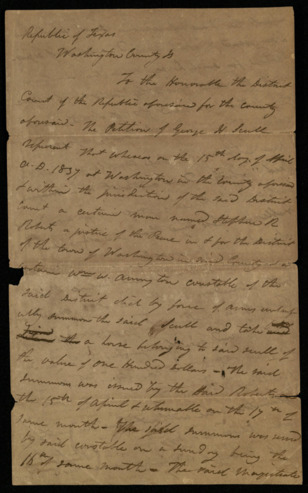 Republic of Texas
Washington County Ss
To the Honorable the District
Court of the Republic aforesaid for the county
aforesaid. The Petition of George H. Scull
represent That whereas on the 15th day of April
A.D. 1837 at Washington in the County aforesaid
& within the jurisdiction of the said District
Court a certain man named Stephen R.
Roberts a justice of the Peace in & for the District
of the town of Washington in said County and a
certain W. W. Arrington constable of the
said District did by force of arms
summons the said Scull and take
a horse belonging to said Scull of
the value of one Hundred dollars - The said
summons was issued by the said Roberts on
the 15th of April & returnable on the 17th of
same month - The said summons was served
by said constable on a sunday being the
16th of same month - The said Magistrate